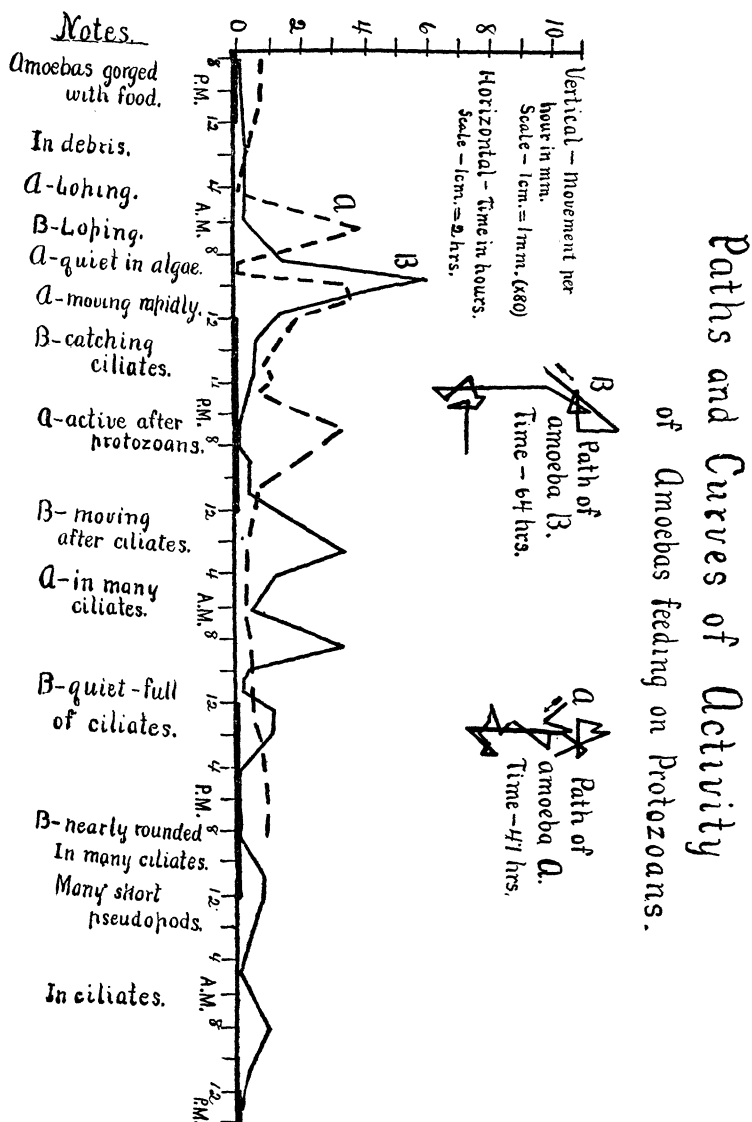 Paths and Curves of Activity
of Amoebas feeding on Protozoans.
Vertical – movement per
hour in mm.
Scale – 1cm. = 1mm. (x80)
Horizontal – Time in hours.
Scale – 1cm. = 2 hrs.
B
Path of
amoeba B.
Time – 64 hrs.
A
Path of
amoeba A.
Time – 47 hrs.
10
8
6
4
2
0
A
B
8 P.M. 12 4 A.M. 8 12 4 P.M. 8 12 4 A.M. 8 12 4 P.M. 8 12 4 A.M. 8 12 P.M.
Notes.
Amoebas gorged
with food.
In debris.
A-Loping.
B-Loping.
A-quiet in algae.
A-moving rapidly.
B-catching
ciliates.
A-active after
protozoans.
B-moving
after ciliates.
A-in many
ciliates.
B-quiet-full
of ciliates.
B-nearly rounded
In many ciliates.
Many short
pseudopods.
In ciliates.